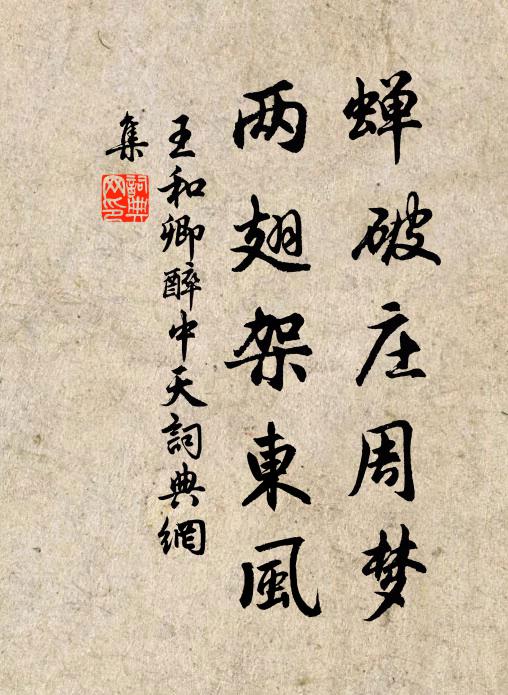 蝉破庄周梦
两翅架東風
王和卿醉中天詞典網
集
詞典
网印